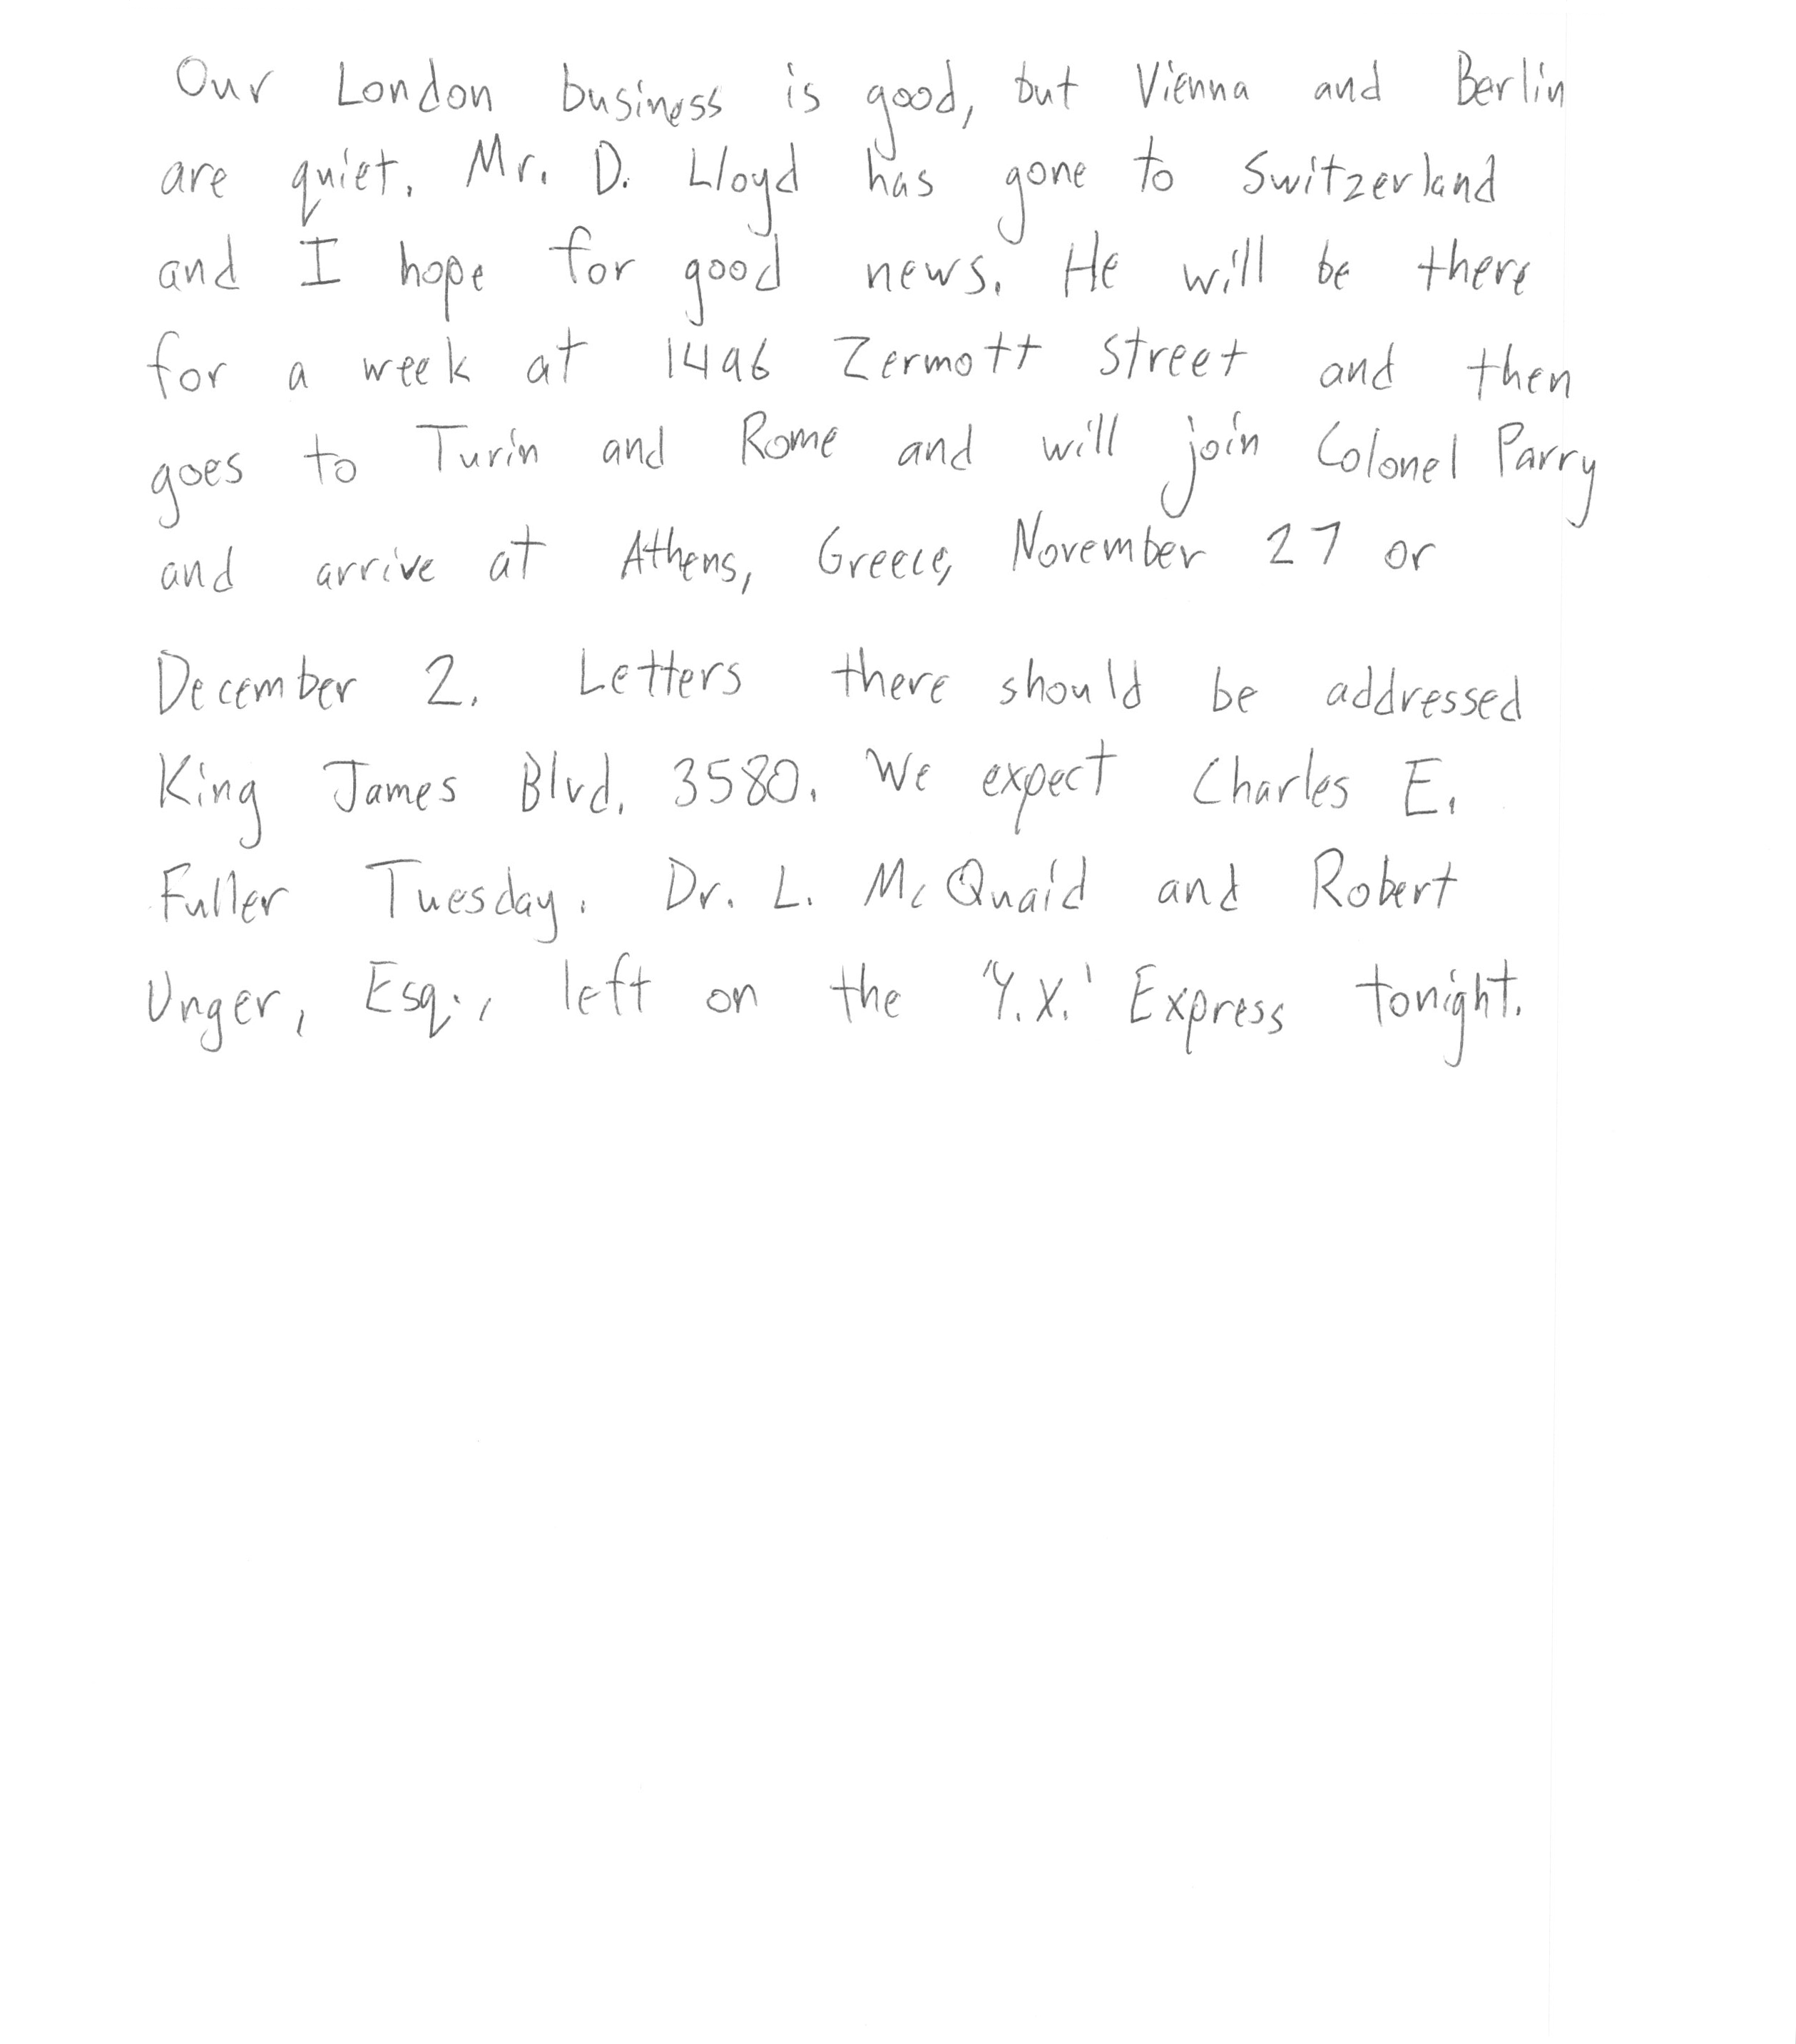 Our London business is good, but Vienna and Berlin
are quiet. Mr. D. Lloyd has gone to Switzerland
and I hope for good news. He will be there
for a week at 1496 Zermott street and then
goes to Turin and Rome and will join Colonel Parry
and arrive at Athens, Greece, November 27 or
December 2. Letters there should be addressed
King James Blvd. 3580. We expect Charles E.
Fuller Tuesday. Dr. L. McQuaid and Robert
Unger, Esq., left on the 'Y.X.' Express tonight.